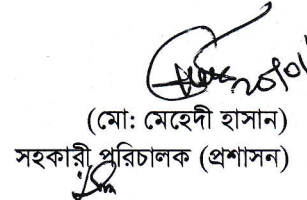 (মো: মেহেদী হাসান)
সহকারী পরিচালক (প্রশাসন)